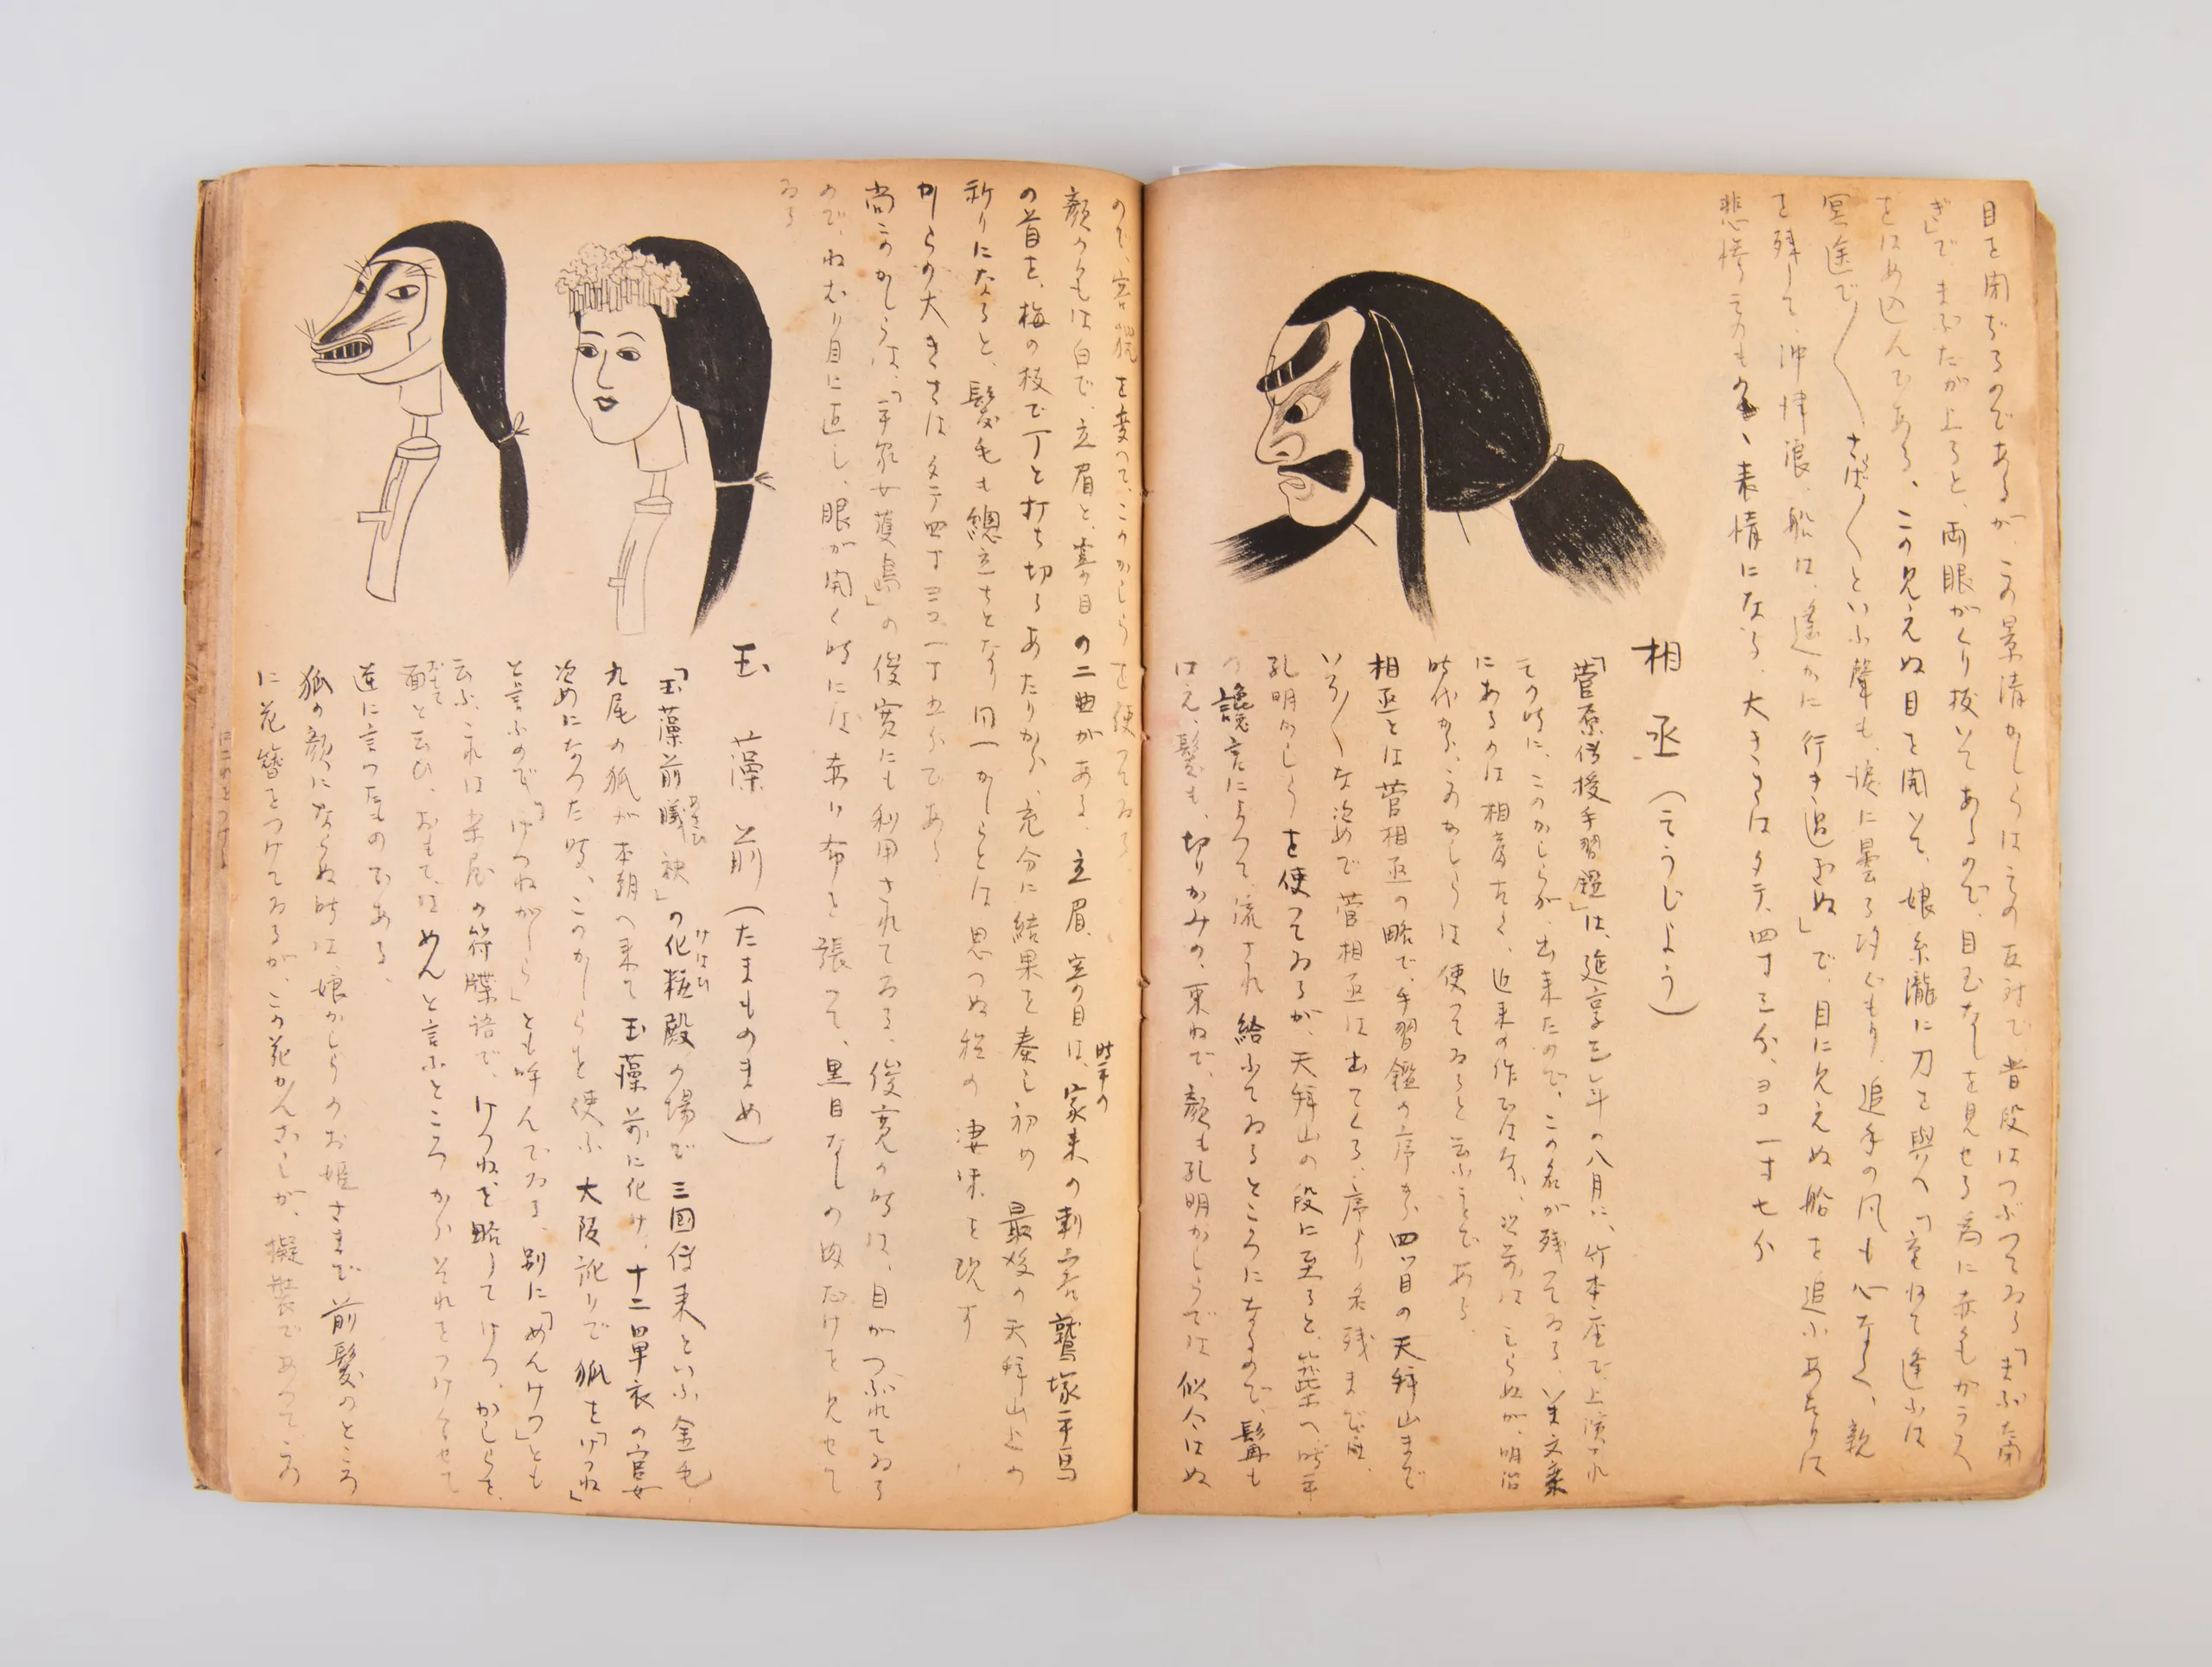 目を閉ぢるのであるが、この景清かしらはその反対で普段はつぶつてゐる「まぶた閉
ぎ」で、まぶたが上ると、両眼がくり抜いてあるので、目玉なしを見せる為に赤もガラス
をはめ込んである、この見えぬ目を開いて、娘糸瀧に刀を與へ「重ねて逢ふは
冥途で〳〵さらば〳〵といふ聲も、涙に曇る汐ぐもり、追手の風も心なく、親
を残して、沖津浪、船は、遙かに行き過ぎぬ」で、目に見えぬ船を追ふあたりは
悲惨そのもの、表情になる、大きさはタテ、四寸三分、ヨコ一寸七分
相丞(そうじよう)
「菅原伝授手習鑑」は、延享三年の八月に、竹本座で、上演され
その時に、このかしらが、出来たので、この名が残つてゐる、いま文楽
にあるのは相当古く、近来の作ではない、以前はしらぬが、明治
時代から、このかしらは使つてゐると云ふことである。
相丞とは菅相丞の略で、手習鑑の序から、四ツ目の天拜山まで
いろ〳〵な姿めで菅相丞は出てくる、序より名残までは、
孔明かしらを使つてゐるが、天拜山の段に至ると、筑紫へ時平
の讒言によつて、流され給ふてゐるところになるので、髯も
はえ、髪も、切りかみの、東ねで、顔も孔明かしらでは似合はぬ
ので、を変へて、このかしらを使つてゐる
顔のいろは白で、立眉と、寄り目の二曲がある、立眉、寄り目は、時平の家来の刺客鷲塚平馬
の首を、梅の枝で丁と打ち切るあたりから、充分に結果を奏し初め最後の天拜山上の
祈りになると、髪毛も總立ちとなり同一かしらとは思つぬ程の凄味を現す
かしらの大きさはタテ四寸ヨコ一寸五分である
尚このかしらは、「平家女護島」の俊寛にも利用されてゐる、俊寛の時は、目がつぶれてゐる
ので、ねむり目に直し、眼が開く時には赤い布を張つて、黒目なしのぬだけを見せて
ゐる
玉藻前(たまものまめ)
「玉藻前曦袂」の化粧殿の場で三國伝来といふ金毛
九尾の狐が本朝へ来て玉藻前に化け、十二單衣の官女
姿めになつた時、このかしらを使ふ大阪訛りで狐を「けつね」
と言ふので、「けつねがしら」とも呼んでゐる、別に「めんけつ」とも
云ふ、これは楽屋の符牒語で、けつねを略してけつ、かしらを、
面と云ひ、おもて、はめんと言ふところからそれをつけ合せて
逆に言つたものである、
狐の顔にならぬ時は娘かしらのお姫さまで前髪のところ
に花簪をつけてゐるが、この花かんざしが、擬装であつて、この